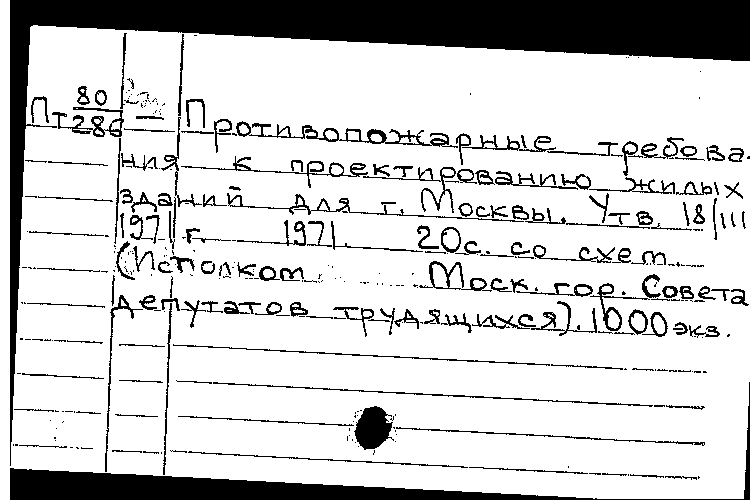 Пт 80/286 – Противопожарные требова-
ния к проектированию жилых
зданий для г. Москвы. Утв. 18/III
1971 г. 1971. 20с. со схем.
(Исполком Моск. гор. Совета
депутатов трудящихся). 1000 экз.